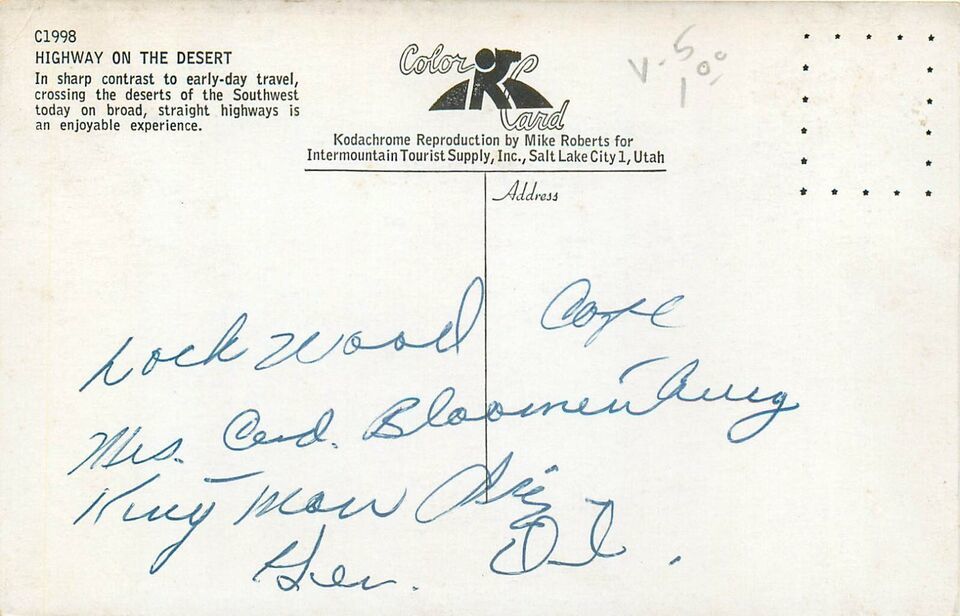 C1998
HIGHWAY ON THE DESERT
In sharp contrast to early-day travel,
crossing the deserts of the Southwest
today on broad, straight highways is
an enjoyable experience.
Color
Card
Kodachrome Reproduction by Mike Roberts for
Intermountain Tourist Supply, Inc., Salt Lake City 1, Utah
Address
Lock Wood
Mrs.
King man
Gen. Del.